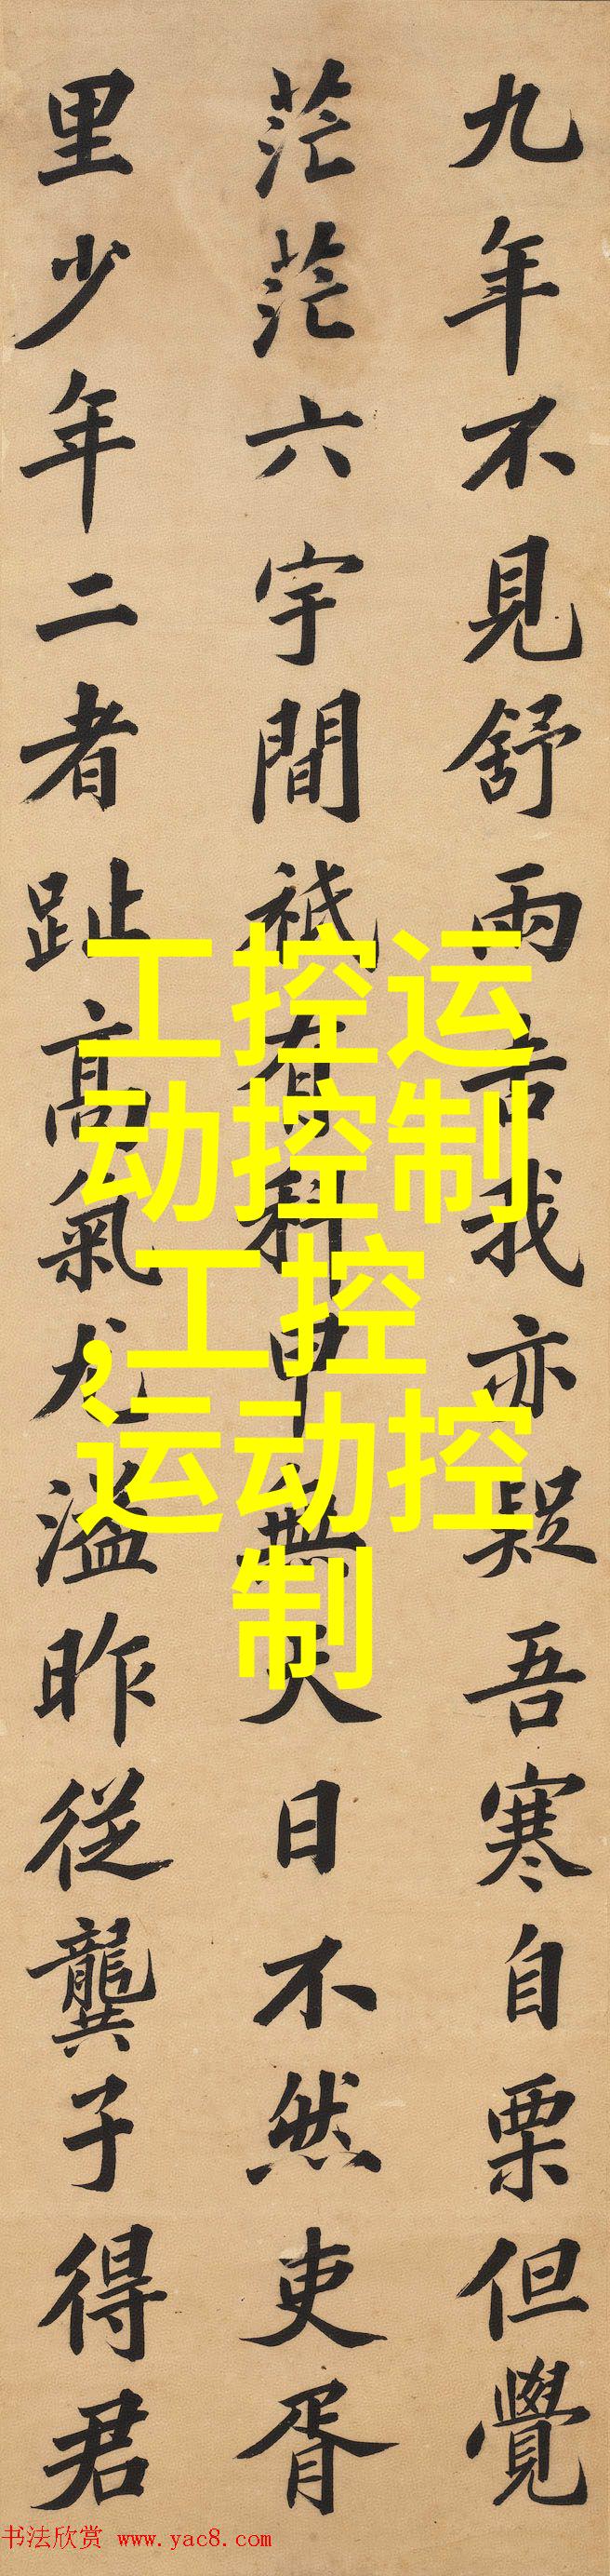 九年不見舒雨吉我亦疑吾寒自栗但覺
茫茫六宇間祗有科甲無天日不然吏胥
里少年二者趾高氣尤溢昨從龔子得君
工控运
动控制
,工控
运动控
制
书法欣赏 www.yac8.com